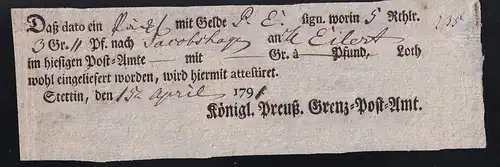 Daß dato ein Päckl mit Gelde P. E. sign. worin 5 Rthlr. 235
3 Gr. 11 Pf. nach Jacobshagen an Eilert
im hiesigen Post-Amte — mit — Gr. à — Pfund, Loth
wohl eingeliefert worden, wird hiermit attestiret.
Stettin, den 15 April 1791
Königl. Preuß. Grenz-Post-Amt.